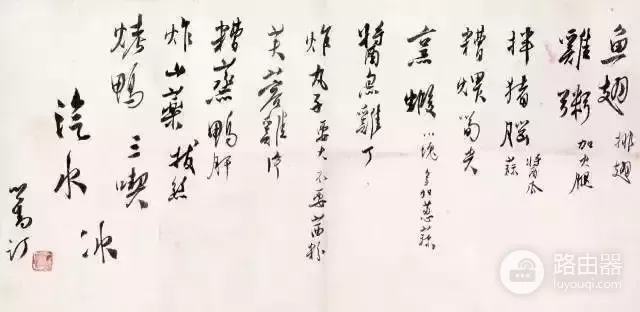 魚翅 排翅
雞粥 加火腿
拌豬腦 蒜 醬瓜
糟煨筍尖
烹蝦 塊 多加蔥蒜
醬 雞丁
炸丸子 要大不要 粉
芙蓉雞片
糟蒸鴨肝
炸山藥 拔絲
烤鴨 三喫
汽水 冰
訂
路由器
luyouqi.com